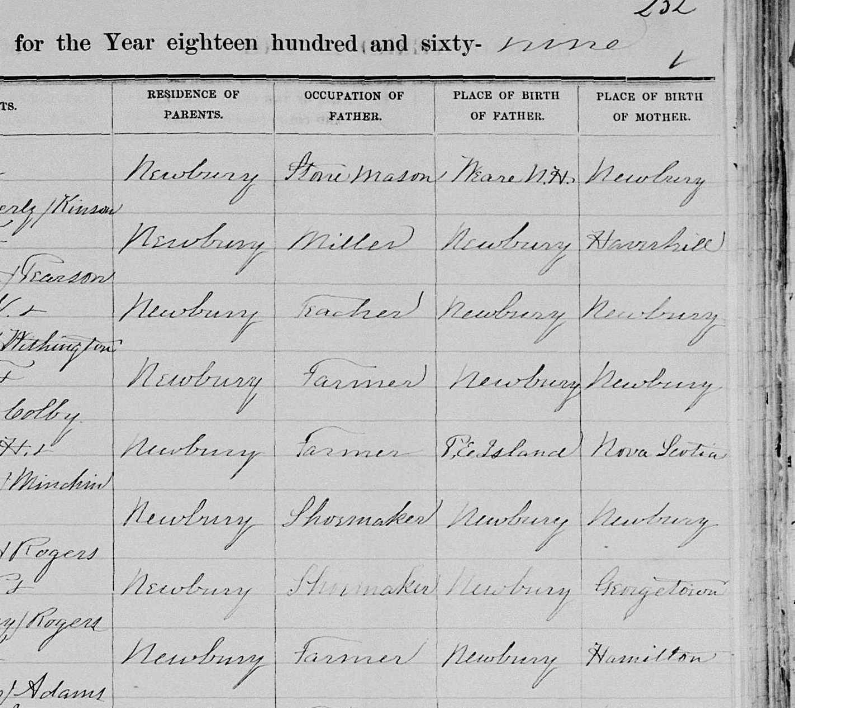 232
for the Year eighteen hundred and sixty- nine
TS. RESIDENCE OF PARENTS. OCCUPATION OF FATHER. PLACE OF BIRTH OF FATHER. PLACE OF BIRTH OF MOTHER.
Newbury Stone Mason Weare N.H. Newbury
Kinson
Newbury Miller Newbury Haverhill
Pearson
Newbury Teacher Newbury Newbury
Withington
Newbury Farmer Newbury Newbury
Colby
H. & Newbury Farmer P.E. Island Nova Scotia
Minchin
Newbury Shoemaker Newbury Newbury
Rogers
Newbury Shoemaker Newbury Georgetown
Rogers
Newbury Farmer Newbury Hamilton
Adams